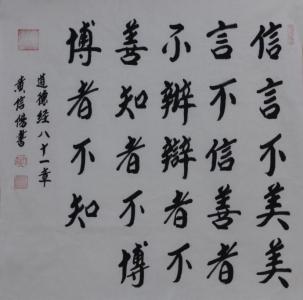 信言不美美
言不信善者
不辯辯者不
善知者不博
博者不知
道德經八十一章
黄信陽書